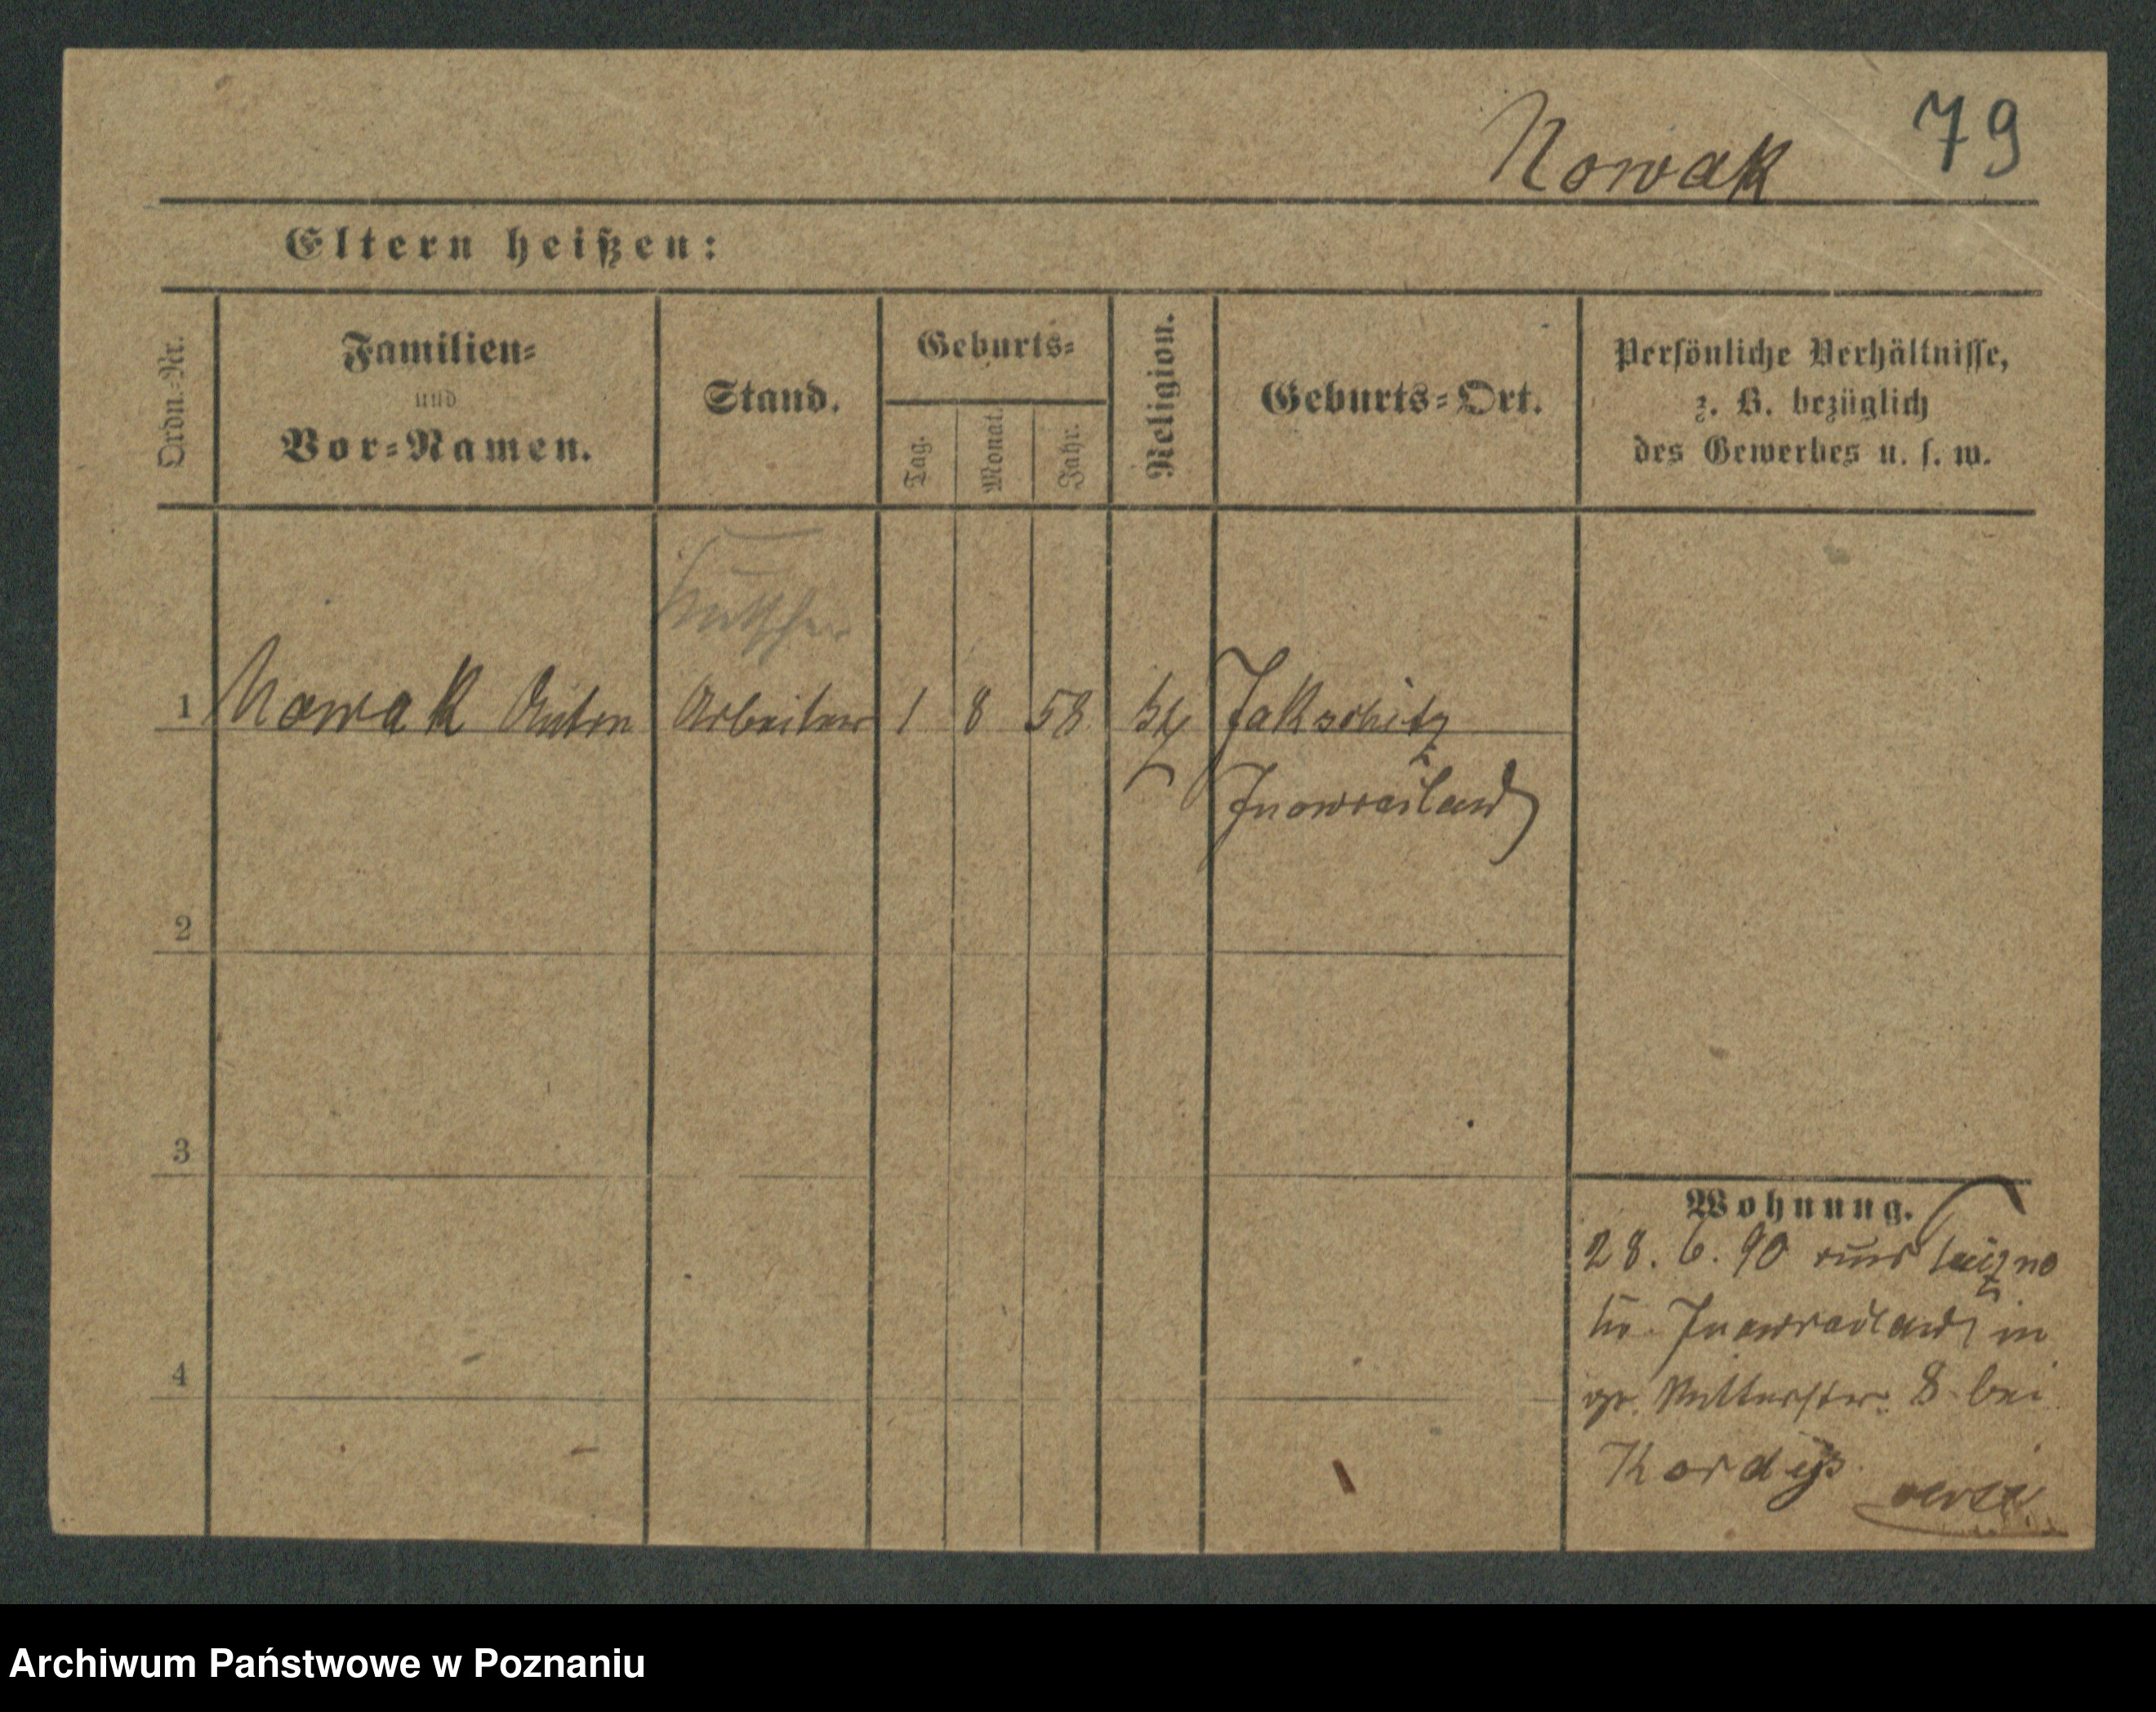 Nowak 79
Eltern heißen:
Ordn.-Nr.
Familien-
und
Vor-Namen.
Stand.
Geburts-
Tag.
Monat.
Jahr.
Religion.
Geburts-Ort.
Persönliche Verhältnisse,
z. B. bezüglich
des Gewerbes u. s. w.
Kutscher
1 Nowak Anton Arbeiter 1 8 58 Jakschitz
Inowrazlaw
2
3
4
Wohnung.
28. 6. 90 aus
Kr. Inowrazlaw in
gr. Ritterstr. 8 bei
Kordys
verte
Archiwum Państwowe w Poznaniu